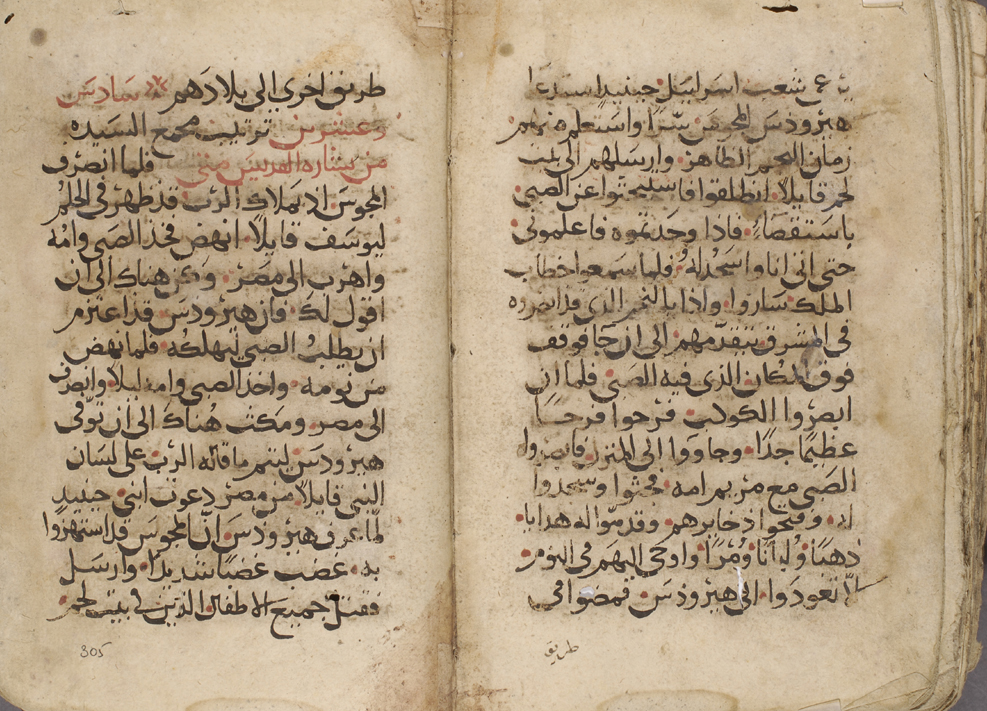 شعب اسراييل حينيدا استدعا
هيروذس المجوس سرا واستعلم منهم
زمان النجم الظاهر وارسلهم الى بيت
لحم قايلا انطلقوا فاسليحثوا عن الصبي
باستقصاء فاذا وجدتموه فاعلموني
حتى اتي انا واسجد له فلما سمعوا خطاب
الملك ساروا واذا بالنجم الذي قد ابصروه
في المشرق يتقدمهم الى ان جا فوقف
فوق المكان الذي فيه الصبي فلما ان
ابصروا الكوكب فرحوا فرحا
عظيما جدا وجاووا الى المنزل فابصروا
الصبي مع مريم امه فجثوا وسجدوا
له وفتحوا ذخايرهم وقدموا له هدايا
ذهبا ولبانا ومرا واوحى اليهم في النوم
الا تعودوا الى هيروذس فمضوا في
طريق
طريق اخرى الى بلادهم سادس
وعشرين ترتيب مجمع السيده
من بشاره القديس متى فلما انصرف
المجوس اذ بملاك الرب قد ظهر في الحلم
ليوسف قايلا انهض فخذ الصبي وامه
واهرب الى مصر وكن هناك الى ان
اقول لك فان هيروذس قد اعتزم
ان يطلب الصبي ليهلكه فلما نهض
من نومه واخذ الصبي وامه ليلا وانصرف
الى مصر ومكث هناك الى ان توفى
هيروذس ليتم ما قاله الرب على لسان
النبي قايلا من مصر دعوت ابني حينيد
لما عرف هيروذس ان المجوس قد استهزوا
به غضب غضبا شديدا وارسل
فقتل جميع الاطفال الذين في بيت لحم
305